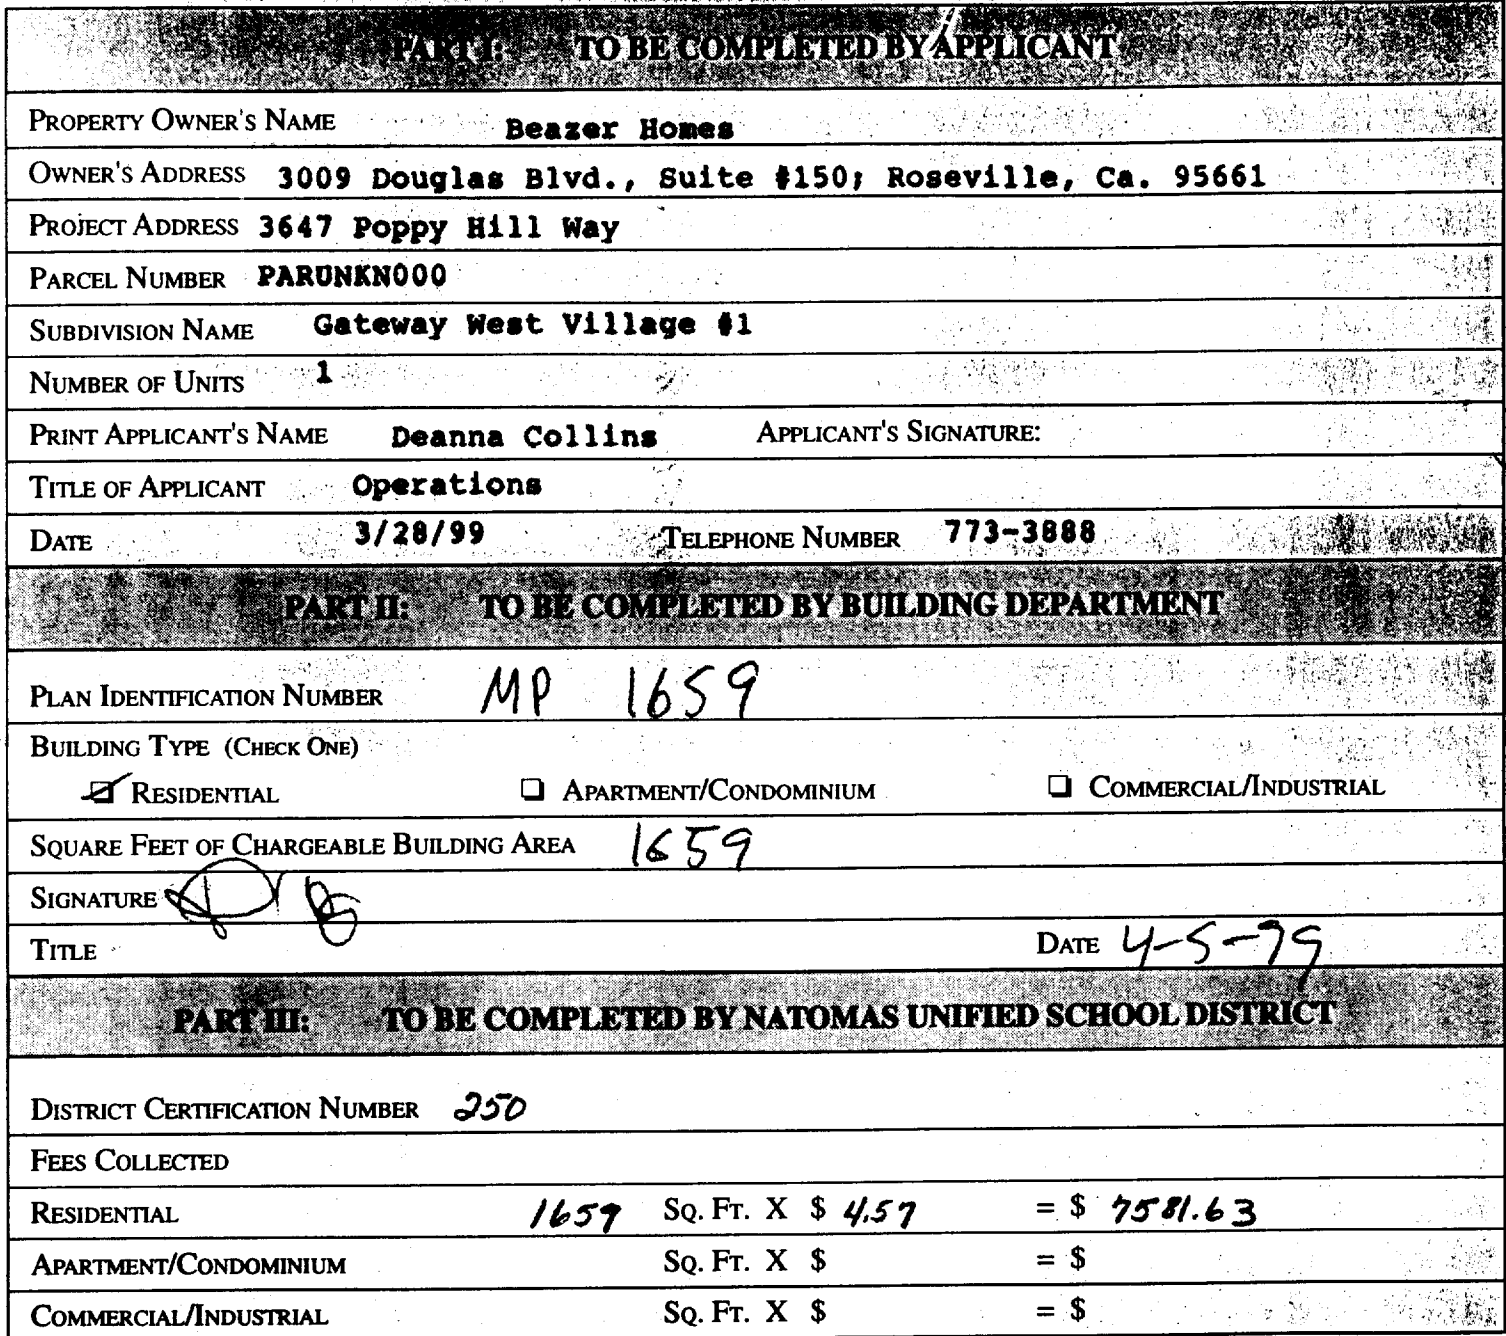 PART I: TO BE COMPLETED BY APPLICANT
PROPERTY OWNER'S NAME Beazer Homes
OWNER'S ADDRESS 3009 Douglas Blvd., Suite #150; Roseville, Ca. 95661
PROJECT ADDRESS 3647 Poppy Hill Way
PARCEL NUMBER PARUNKN000
SUBDIVISION NAME Gateway West Village #1
NUMBER OF UNITS 1
PRINT APPLICANT'S NAME Deanna Collins APPLICANT'S SIGNATURE:
TITLE OF APPLICANT Operations
DATE 3/28/99 TELEPHONE NUMBER 773-3888
PART II: TO BE COMPLETED BY BUILDING DEPARTMENT
PLAN IDENTIFICATION NUMBER MP 1659
BUILDING TYPE (CHECK ONE)
☑ RESIDENTIAL ❑ APARTMENT/CONDOMINIUM ❑ COMMERCIAL/INDUSTRIAL
SQUARE FEET OF CHARGEABLE BUILDING AREA 1659
SIGNATURE
TITLE DATE 4-5-99
PART III: TO BE COMPLETED BY NATOMAS UNIFIED SCHOOL DISTRICT
DISTRICT CERTIFICATION NUMBER 250
FEES COLLECTED
RESIDENTIAL 1659 SQ. FT. X $ 4.57 = $ 7581.63
APARTMENT/CONDOMINIUM SQ. FT. X $ = $
COMMERCIAL/INDUSTRIAL SQ. FT. X $ = $